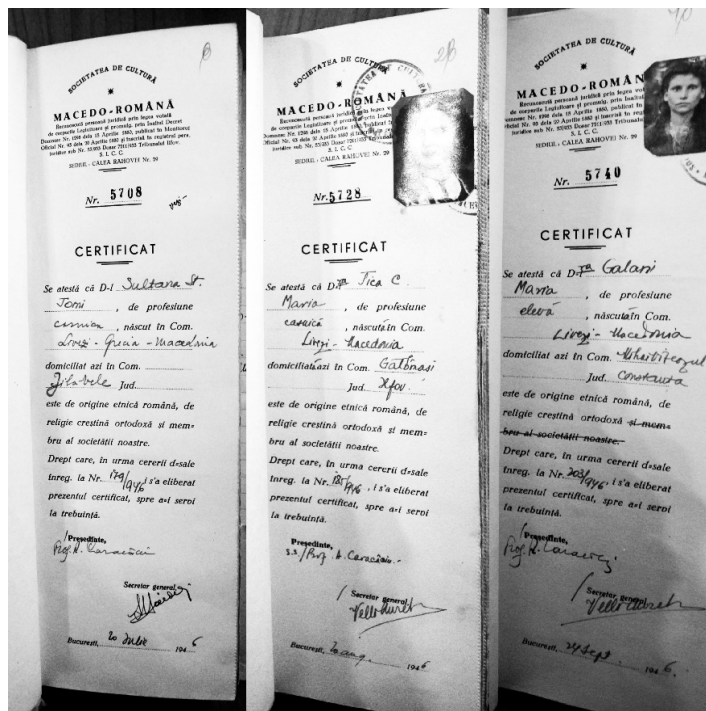 B
SOCIETATEA DE CULTURĂ
MACEDO-ROMÂNĂ
Recunoscută persoană juridică prin legea votată
de corpurile Legiuitoare și promulg. prin Înaltul Decret
Domnesc Nr. 1298 dela 15 Aprilie 1880, publicat în Monitorul
Oficial Nr. 93 dela 20 Aprilie 1880 și înscrisă în registrul pers.
juridice sub Nr.
S. I. C. C.
SEDIUL: CALEA RAHOVEI Nr. 29
Nr. 5708
CERTIFICAT
Se atestă că D-l Sultana St.
Tomi , de profesiune
casnica , născut în Com.
Livezi - Grecia - Macedonia
domiciliat azi în Com.
Jilavele Jud.
este de origine etnică română, de
religie creștină ortodoxă și mem=
bru al societății noastre.
Drept care, în urma cererii d=sale
înreg. la Nr. 179/946 i s'a eliberat
prezentul certificat, spre a=i servi
la trebuință.
Președinte,
Secretar general,
București, 20 Iulie 1946
2B
SOCIETATEA DE CULTURĂ
MACEDO-ROMÂNĂ
Recunoscută persoană juridică prin legea votată
de corpurile Legiuitoare și promulg. prin Înaltul Decret
Domnesc Nr. 1298 dela 15 Aprilie 1880, publicat în
Oficial Nr. 93 dela 20 Aprilie 1880 și
juridice sub Nr.
S. I. C. C.
SEDIUL: CALEA RAHOVEI Nr. 29
Nr. 5728
CERTIFICAT
Se atestă că D-ra Tica C.
Maria , de profesiune
casnică , născută în Com.
Livezi - Macedonia
domiciliată azi în Com. Gălbinași
Jud. Ilfov
este de origine etnică română, de
religie creștină ortodoxă și mem=
bru al societății noastre.
Drept care, în urma cererii d=sale
înreg. la Nr. 185/946 , i s'a eliberat
prezentul certificat, spre a=i servi
la trebuință.
Președinte,
s.s./Prof. N. Caracină
Secretar general,
București, 2 aug. 1946
SOCIETATEA DE CULTURĂ
MACEDO-ROMÂN
Recunoscută persoană juridică prin legea
de corpurile Legiuitoare și promulg. prin Înaltul
Domnesc Nr. 1298 dela 15 Aprilie 1880, publicat în
Oficial Nr. 93 dela 20 Aprilie 1880 și
juridice sub Nr.
S. I. C. C.
SEDIUL: CALEA RAHOVEI Nr. 29
Nr. 5740
CERTIFICAT
Se atestă că D-ra Galani
Maria , de profesiune
elevă , născută în Com.
Livezi - Macedonia
domiciliat azi în Com.
Jud. Constanța
este de origine etnică română, de
religie creștină ortodoxă și mem=
bru al societății noastre.
Drept care, în urma cererii d=sale
înreg. la Nr. 203/946 , i s'a eliberat
prezentul certificat, spre a=i servi
la trebuință.
Președinte,
Secretar general,
București, 24 Sept. 1946